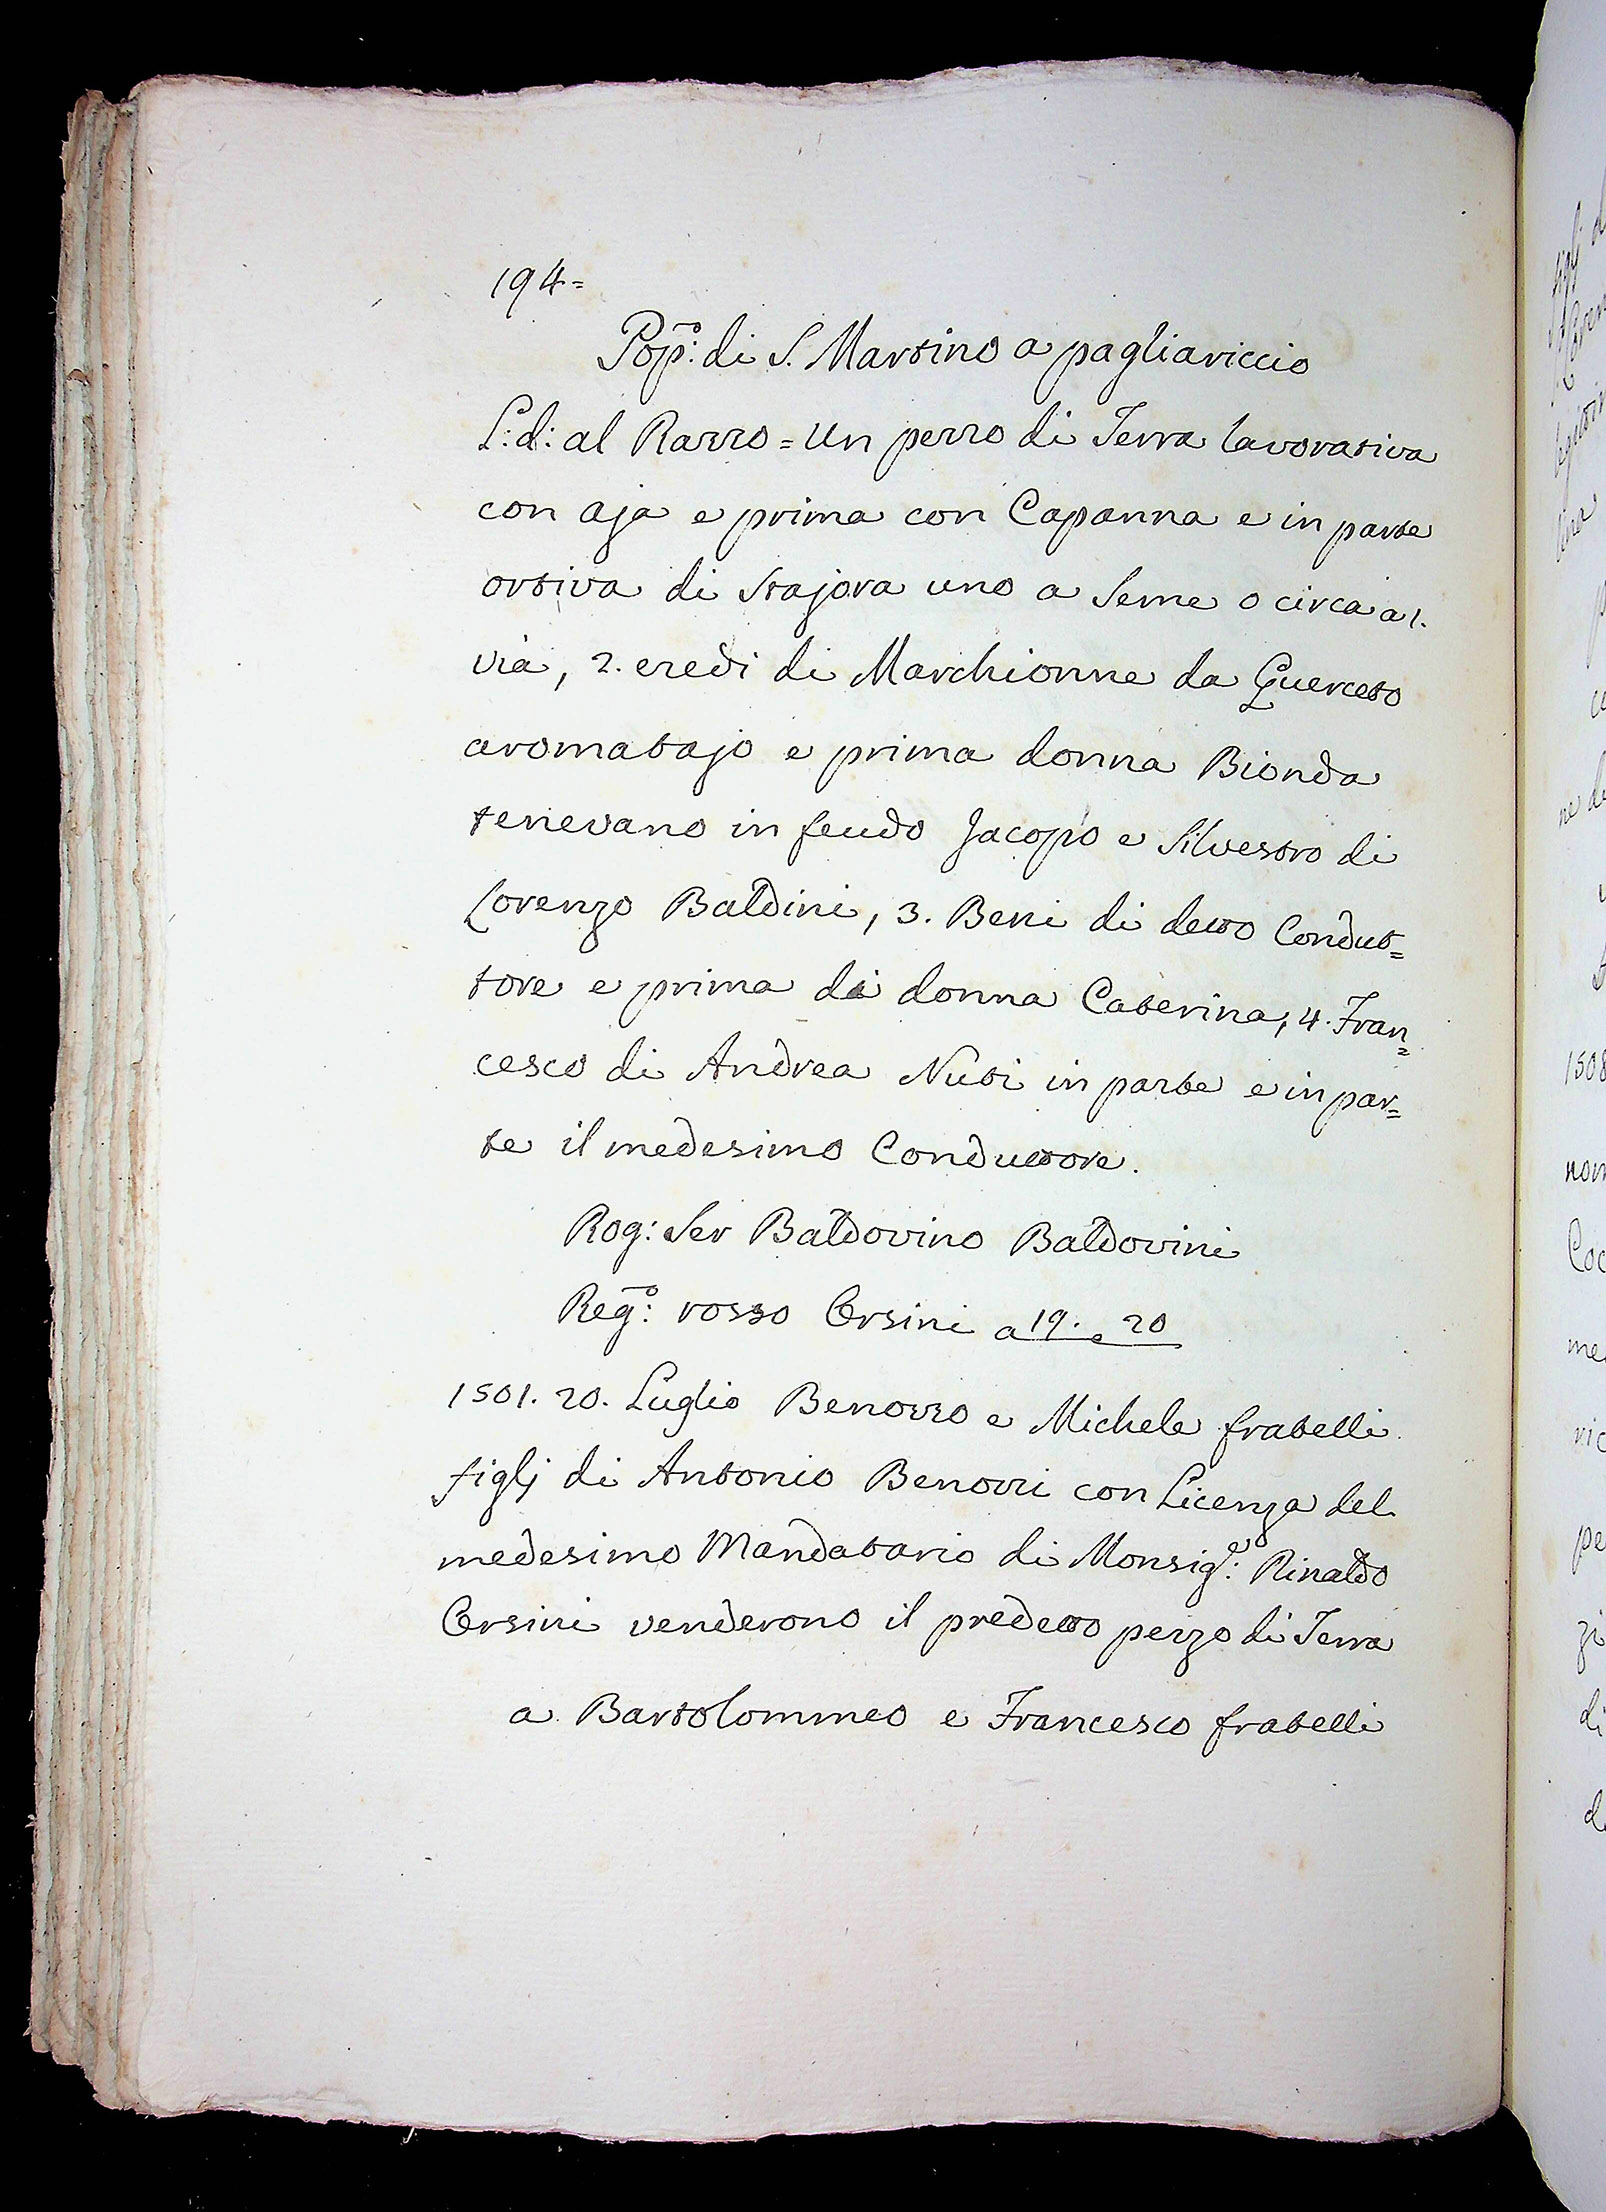 194=
Pop:º di S. Martino a pagliariccio
L: d: al Razzo = Un pezzo di Terra lavorativa
con aja e prima con Capanna e in parte
ortiva di Stajora uno a Seme o circa a 1.
via, 2. eredi di Marchionne da Querceto
aromatajo e prima donna Bionda
tenevano in feudo Jacopo e Silvestro di
Lorenzo Baldini, 3. Beni di detto Condut=
tore e prima di donna Caterina, 4. Fran=
cesco di Andrea Nuti in parte e in par=
te il medesimo Conduttore.
Rog: Ser Baldovino Baldovini
Reg:º rosso Orsini a 19. e 20
1501. 20. Luglio Benozzo e Michele fratelli
figlj di Antonio Benozzi con Licenza del
medesimo Mandatario di Monsig:e Rinaldo
Orsini venderono il predetto pezzo di Terra
a Bartolommeo e Francesco fratelli
1508